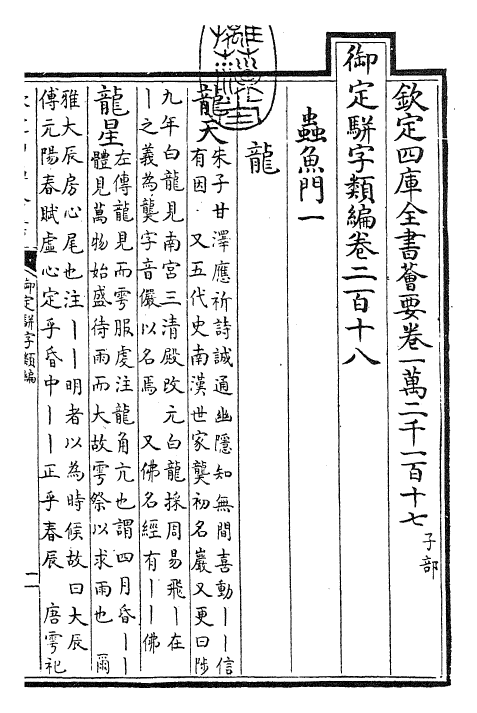 欽定四庫全書薈要卷一萬二千一百十七 子部
御定駢字類編卷二百十八
蟲魚門一
龍
龍天 朱子甘澤應祈詩誠通幽隱知無間喜動丨丨信
有因 又五代史南漢世家龑初名巖又更曰陟
九年白龍見南宮三清殿改元白龍採周易飛丨在
丨之義為龑字音儼以名焉 又佛名經有丨丨佛
龍星 左傳龍見而雩服虔注龍角亢也謂四月昏丨丨
體見萬物始盛待雨而大故雩祭以求雨也 爾
雅大辰房心尾也注丨丨明者以為時候故曰大辰
傅元陽春賦虛心定乎昏中丨丨正乎春辰 唐雩祀
御定駢字類編